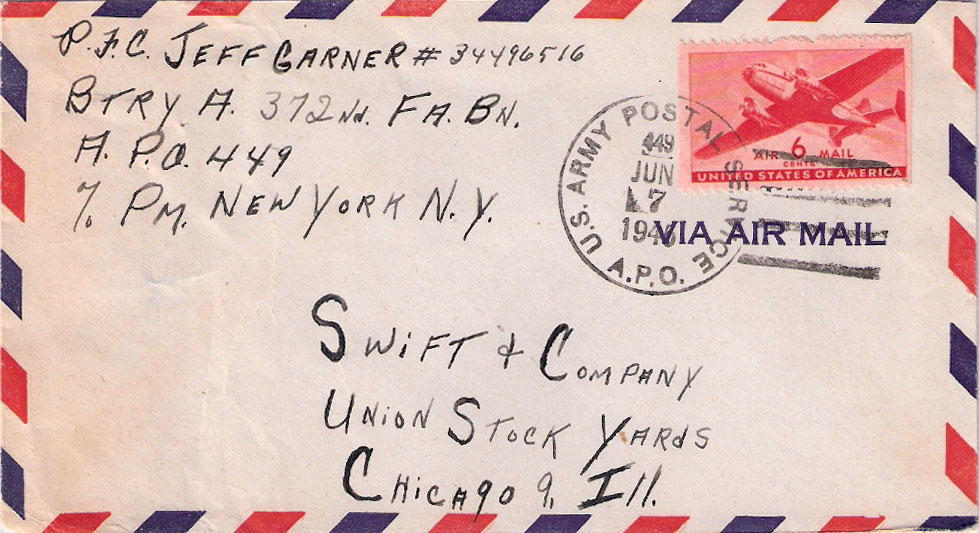 P.F.C. JEFF GARNER # 34496516
BTRY. A. 372Nd. FA. BN.
A. P.O. 449
% PM. NEW YORK N.Y.
U.S. ARMY POSTAL SERVICE
A.P.O.
449
JUN
7
AIR 6 MAIL
CENTS
UNITED STATES OF AMERICA
VIA AIR MAIL
SWiFT & COMPANY
UNiON STOCK YARdS
CHiCAgO 9, Ill.